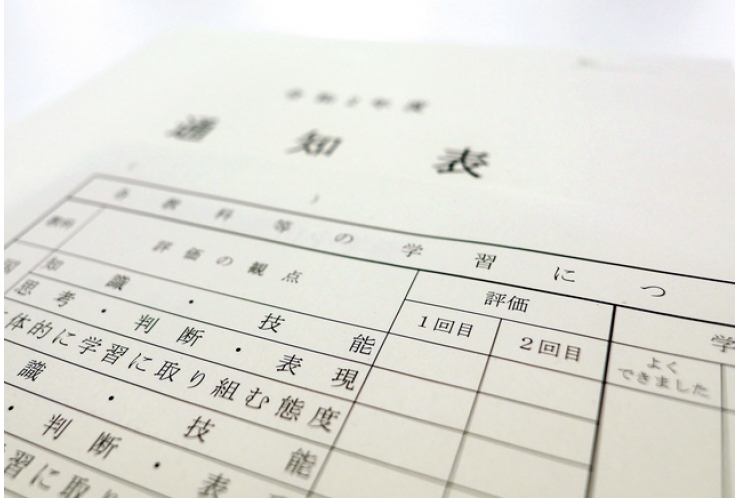 通知表
各教科等の学習につ
教科
評価の観点
評価
学
1回目
2回目
よく
できました
知識・技能
思考・判断・表現
体的に学習に取り組む態度
識・技能
・判断・表
習に取り